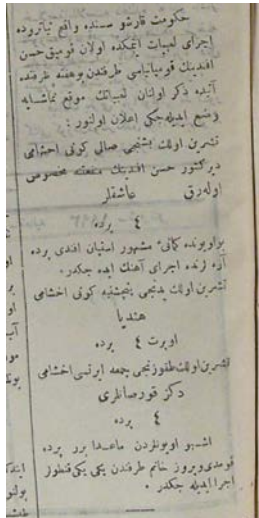 حکومت قارشو سنده واقع تیاتروده
اجرای لعبیات ایتمکده اولان قومیق حسن
افندینك قومپانیاسی طرفندن بوهفته ظرفنده
آتیده ذکر اولنان لعبیاتك موقع تماشایه
وضع ایدیله جکی اعلان اولنور :
تشرین اولك بشنجی صالی کونی اخشامی
دیرکتور حسن افندینك منفعته مخصوص
اوله رق عاشقلر
٤ پرده
بو اویونده کمانی مشهور استپان افندی پرده
آره لرنده اجرای آهنك ایده جکدر .
تشرین اولك یدنجی پنجشنبه کونی اخشامی
هندیا
اوپرت ٤ پرده
تشرین اولك طقوزنجی جمعه ایرتسی اخشامی
دکز قورصانلری
٤ پرده
اشبو اویونلردن ماعدا برر پرده
قومدی وپروز خانم طرفندن یکی یکی قنطور
اجرا ایدیله جکدر .